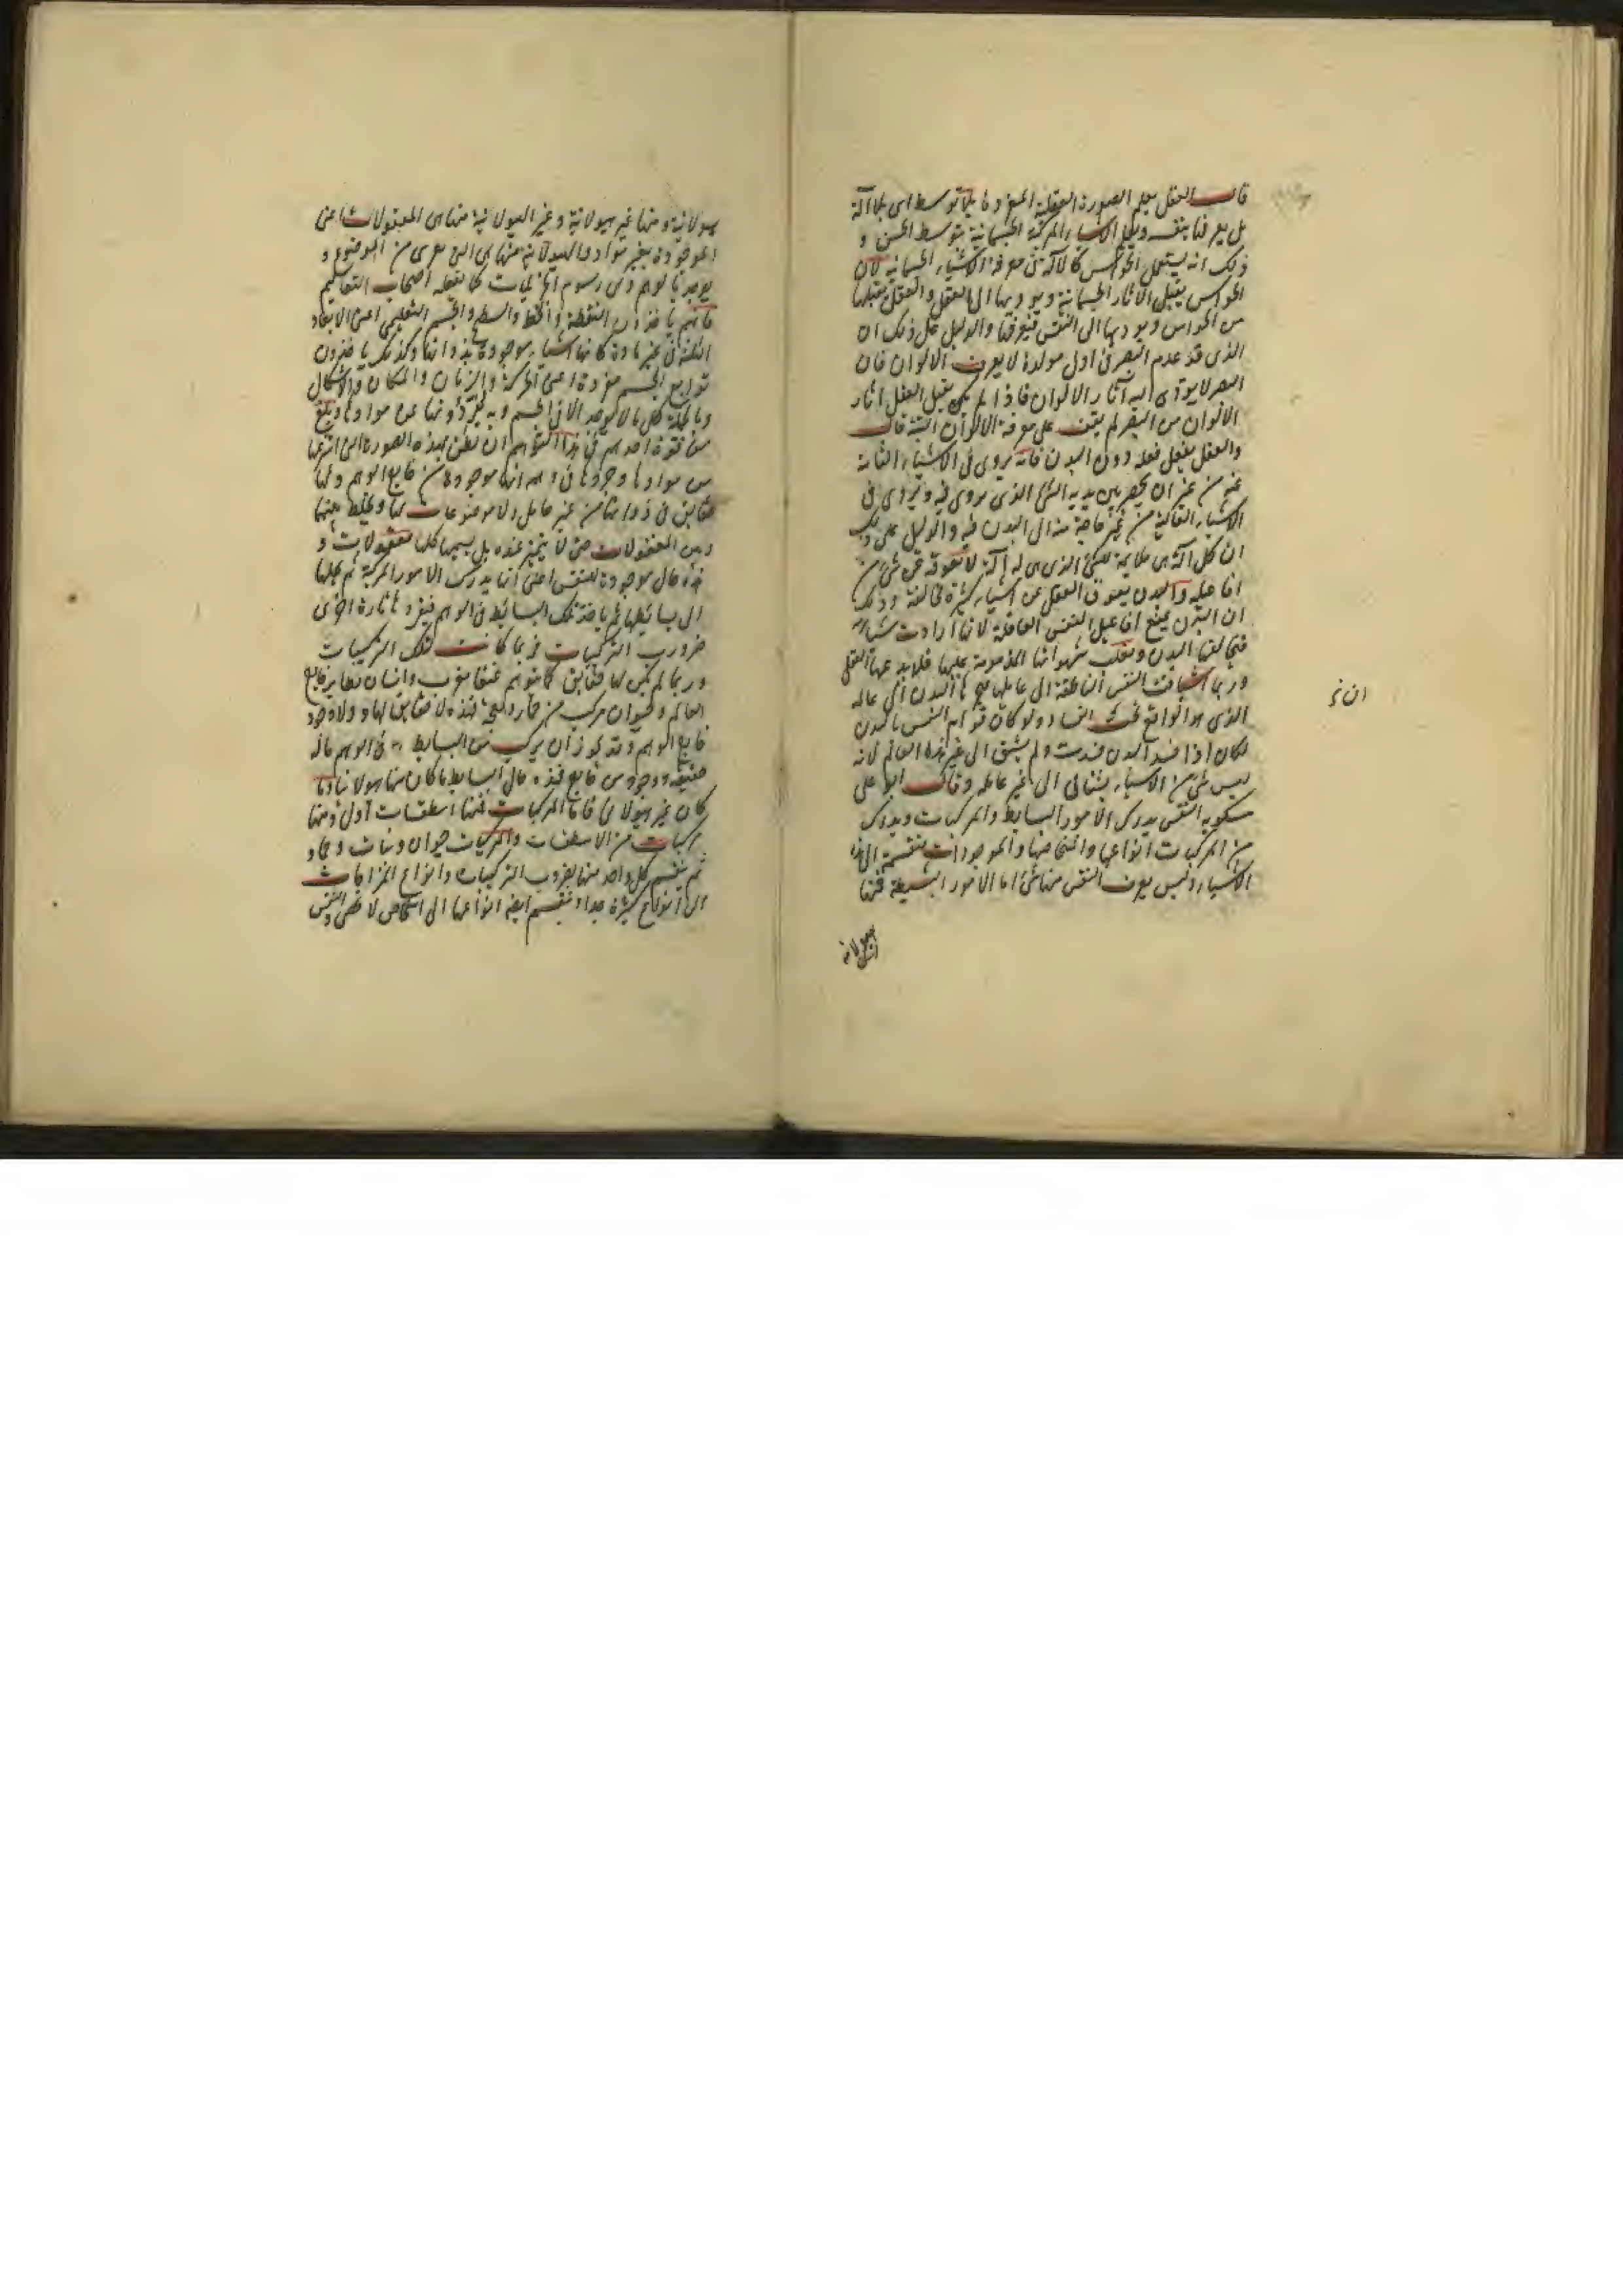 قالت العقل يعلم الصورة العقلية المفردة بلا توسط اى بلا آلة
بل يعرفها بنفسه ويعلم الاشياء المركبة الجسمانية بتوسط الحس و
ذلك انه يستعمل الحواس كالآلة فى معرفة الاشياء الجسمانية لان
الحواس يقبل الآثار الجسمانية ويوديها الى العقل والعقل يقبلها
من الحواس ويوديها الى النفس فيعرفها والدليل على ذلك ان
الذى قد عدم البصر فى اول مولده لا يعرف الالوان فان
البصر لا يؤدى اليه آثار الالوان فاذا لم يكن يقبل العقل آثار
الالوان من البصر لم يقف على معرفة الالوان البتة قالت
والعقل يفعل فعله دون البدن فانه يروى فى الاشياء الغائبة
عنه من غير ان يحضر بين يديه الشئ الذى يروى فيه ويروى فى
الاشياء العالية من غير حاجة منه الى البدن فيه والدليل على ذلك
ان كل آلة هى ملايمة للشئ الذى هى له آلة لا تعوقه عن شئ من
افاعيله والبدن يعوق العقل عن اشياء كثيرة مخالفة وذلك
ان البدن يمنع افاعيل النفس العاقلة لانها ارادت شيئا
فيخالفها البدن وتغلب شهواتها المذمومة عليها
وربما اشتاقت النفس الناطقة الى عالمها البدن الى عالمه
الذى هو الواقع تحت الفساد ولو كان قوام النفس بالبدن
لكان اذا فسد البدن فسدت ولم يشتق الى غير هذا العالم لانه
ليس شئ من الاشياء يشتاق الى غير عالمه وقالت ابو على
مسكويه النفس يدرك الامور البسايط والمركبات ويدرك
من المركبات انواعها واشخاصها والموجودات تنقسم الى هذه
الاشياء وليس يعرف النفس منها شئ اما الامور البسيطة فمنها
هيولانية
ان نخ
هيولانية ومنها غير هيولانية وغير الهيولانية منها هى المعقولات اعنى
الموجودة بغير مواد والهيولانية منها هى التى تعرى من الموضوع و
يوجد بالوهم وهى رسوم الجزئيات كما يفعله اصحاب التعاليم
فانهم ياخذون النقطة والخط والسطح والجسم التعليمى اعنى الابعاد
الثلثة فى غير مادة كانها اشياء موجودة بذواتها وكذلك ياخذون
توابع الجسم مفردة اعنى الحركة والزمان والمكان والاشكال
وبالجملة كل ما لا يوجد الا فى الجسم وبه يجردونها عن موادها وبلغ
من قوة احدهم فى هذا التوهم ان يظن بهذه الصورة التى انتزعها
من موادها وجردها فى وهمه انها موجودة من خارج الوهم ولها
حقايق فى ذواتها من غير حامل ولا موضوعات لها وخلط بينها
وبين المعقولات حتى لا يتميز عنده بل يسميها كلها معقولات و
هذه حال موجودة للنفس اعنى انها يدرك الامور المركبة ثم يحلها
الى بسائطها ثم ياخذ تلك البسائط فى الوهم فيفردها تارة اخرى
ضروب التركيبات فربما كانت لتلك التركيبات
وربما لم يكن لها حقايق كما يتوهم عنقا مغرب وانسان يطير خارج
العالم وحيوان مركب من فهذه لا حقايق لها ولا وجود
خارج الوهم وقد يجوز ان يركب من البسايط فى الوهم ما له
حقيقة ووجود من خارج فهذه حال البسايط ما كان منها هيولانيا وما
كان غير هيولانى فاما المركبات فمنها اسطقسات اول ومنها
مركبات من الاسطقسات والمركبات حيوان ونبات وجماد
ثم ينقسم كل واحد منها بضروب التركيبات وانواع المزاجات
الى انواع كثيرة جدا وينقسم ايضا انواعها الى اشخاص لا تحصى والنفس